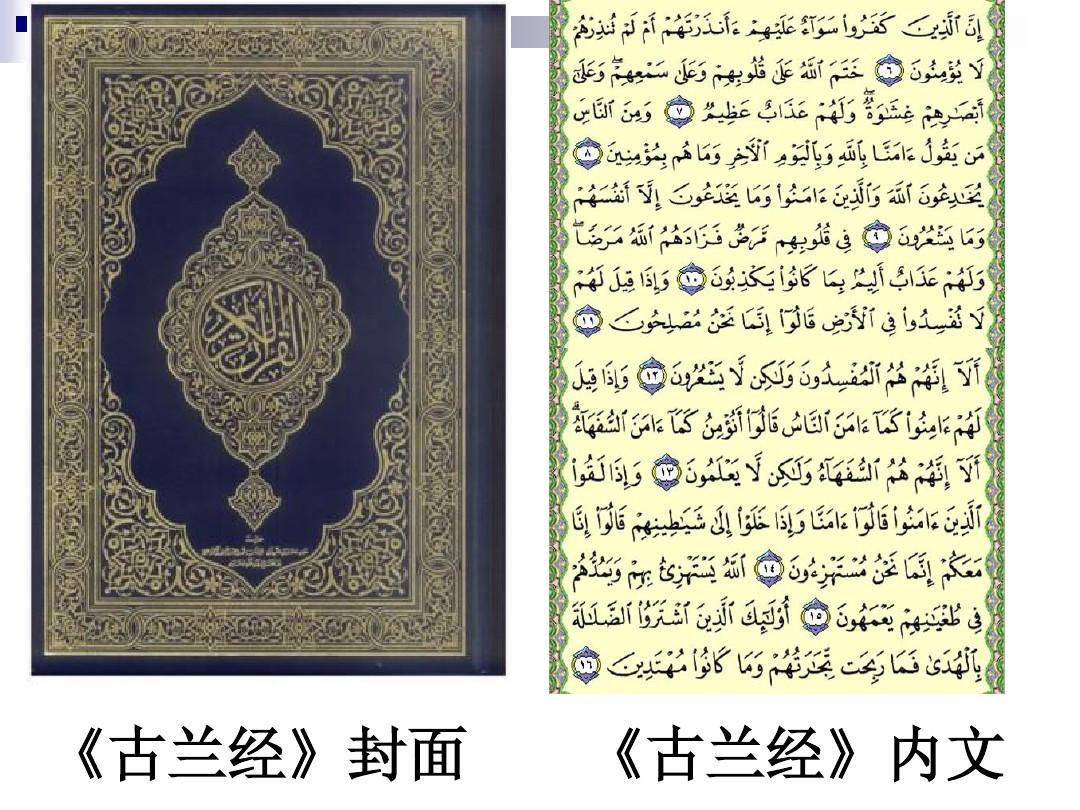 القرآن الكريم
إِنَّ ٱلَّذِينَ كَفَرُوا۟ سَوَآءٌ عَلَيْهِمْ ءَأَنذَرْتَهُمْ أَمْ لَمْ تُنذِرْهُمْ
لَا يُؤْمِنُونَ ٦ خَتَمَ ٱللَّهُ عَلَىٰ قُلُوبِهِمْ وَعَلَىٰ سَمْعِهِمْ ۖ وَعَلَىٰٓ
أَبْصَـٰرِهِمْ غِشَـٰوَةٌ ۖ وَلَهُمْ عَذَابٌ عَظِيمٌ ٧ وَمِنَ ٱلنَّاسِ
مَن يَقُولُ ءَامَنَّا بِٱللَّهِ وَبِٱلْيَوْمِ ٱلْـَٔاخِرِ وَمَا هُم بِمُؤْمِنِينَ ٨
يُخَـٰدِعُونَ ٱللَّهَ وَٱلَّذِينَ ءَامَنُوا۟ وَمَا يَخْدَعُونَ إِلَّآ أَنفُسَهُمْ
وَمَا يَشْعُرُونَ ٩ فِى قُلُوبِهِم مَّرَضٌ فَزَادَهُمُ ٱللَّهُ مَرَضًا ۖ
وَلَهُمْ عَذَابٌ أَلِيمٌۢ بِمَا كَانُوا۟ يَكْذِبُونَ ١٠ وَإِذَا قِيلَ لَهُمْ
لَا تُفْسِدُوا۟ فِى ٱلْأَرْضِ قَالُوٓا۟ إِنَّمَا نَحْنُ مُصْلِحُونَ ١١
أَلَآ إِنَّهُمْ هُمُ ٱلْمُفْسِدُونَ وَلَـٰكِن لَّا يَشْعُرُونَ ١٢ وَإِذَا قِيلَ
لَهُمْ ءَامِنُوا۟ كَمَآ ءَامَنَ ٱلنَّاسُ قَالُوٓا۟ أَنُؤْمِنُ كَمَآ ءَامَنَ ٱلسُّفَهَآءُ ۗ
أَلَآ إِنَّهُمْ هُمُ ٱلسُّفَهَآءُ وَلَـٰكِن لَّا يَعْلَمُونَ ١٣ وَإِذَا لَقُوا۟
ٱلَّذِينَ ءَامَنُوا۟ قَالُوٓا۟ ءَامَنَّا وَإِذَا خَلَوْا۟ إِلَىٰ شَيَـٰطِينِهِمْ قَالُوٓا۟ إِنَّا
مَعَكُمْ إِنَّمَا نَحْنُ مُسْتَهْزِءُونَ ١٤ ٱللَّهُ يَسْتَهْزِئُ بِهِمْ وَيَمُدُّهُمْ
فِى طُغْيَـٰنِهِمْ يَعْمَهُونَ ١٥ أُو۟لَـٰٓئِكَ ٱلَّذِينَ ٱشْتَرَوُا۟ ٱلضَّلَـٰلَةَ
بِٱلْهُدَىٰ فَمَا رَبِحَت تِّجَـٰرَتُهُمْ وَمَا كَانُوا۟ مُهْتَدِينَ ١٦
《古兰经》封面
《古兰经》内文